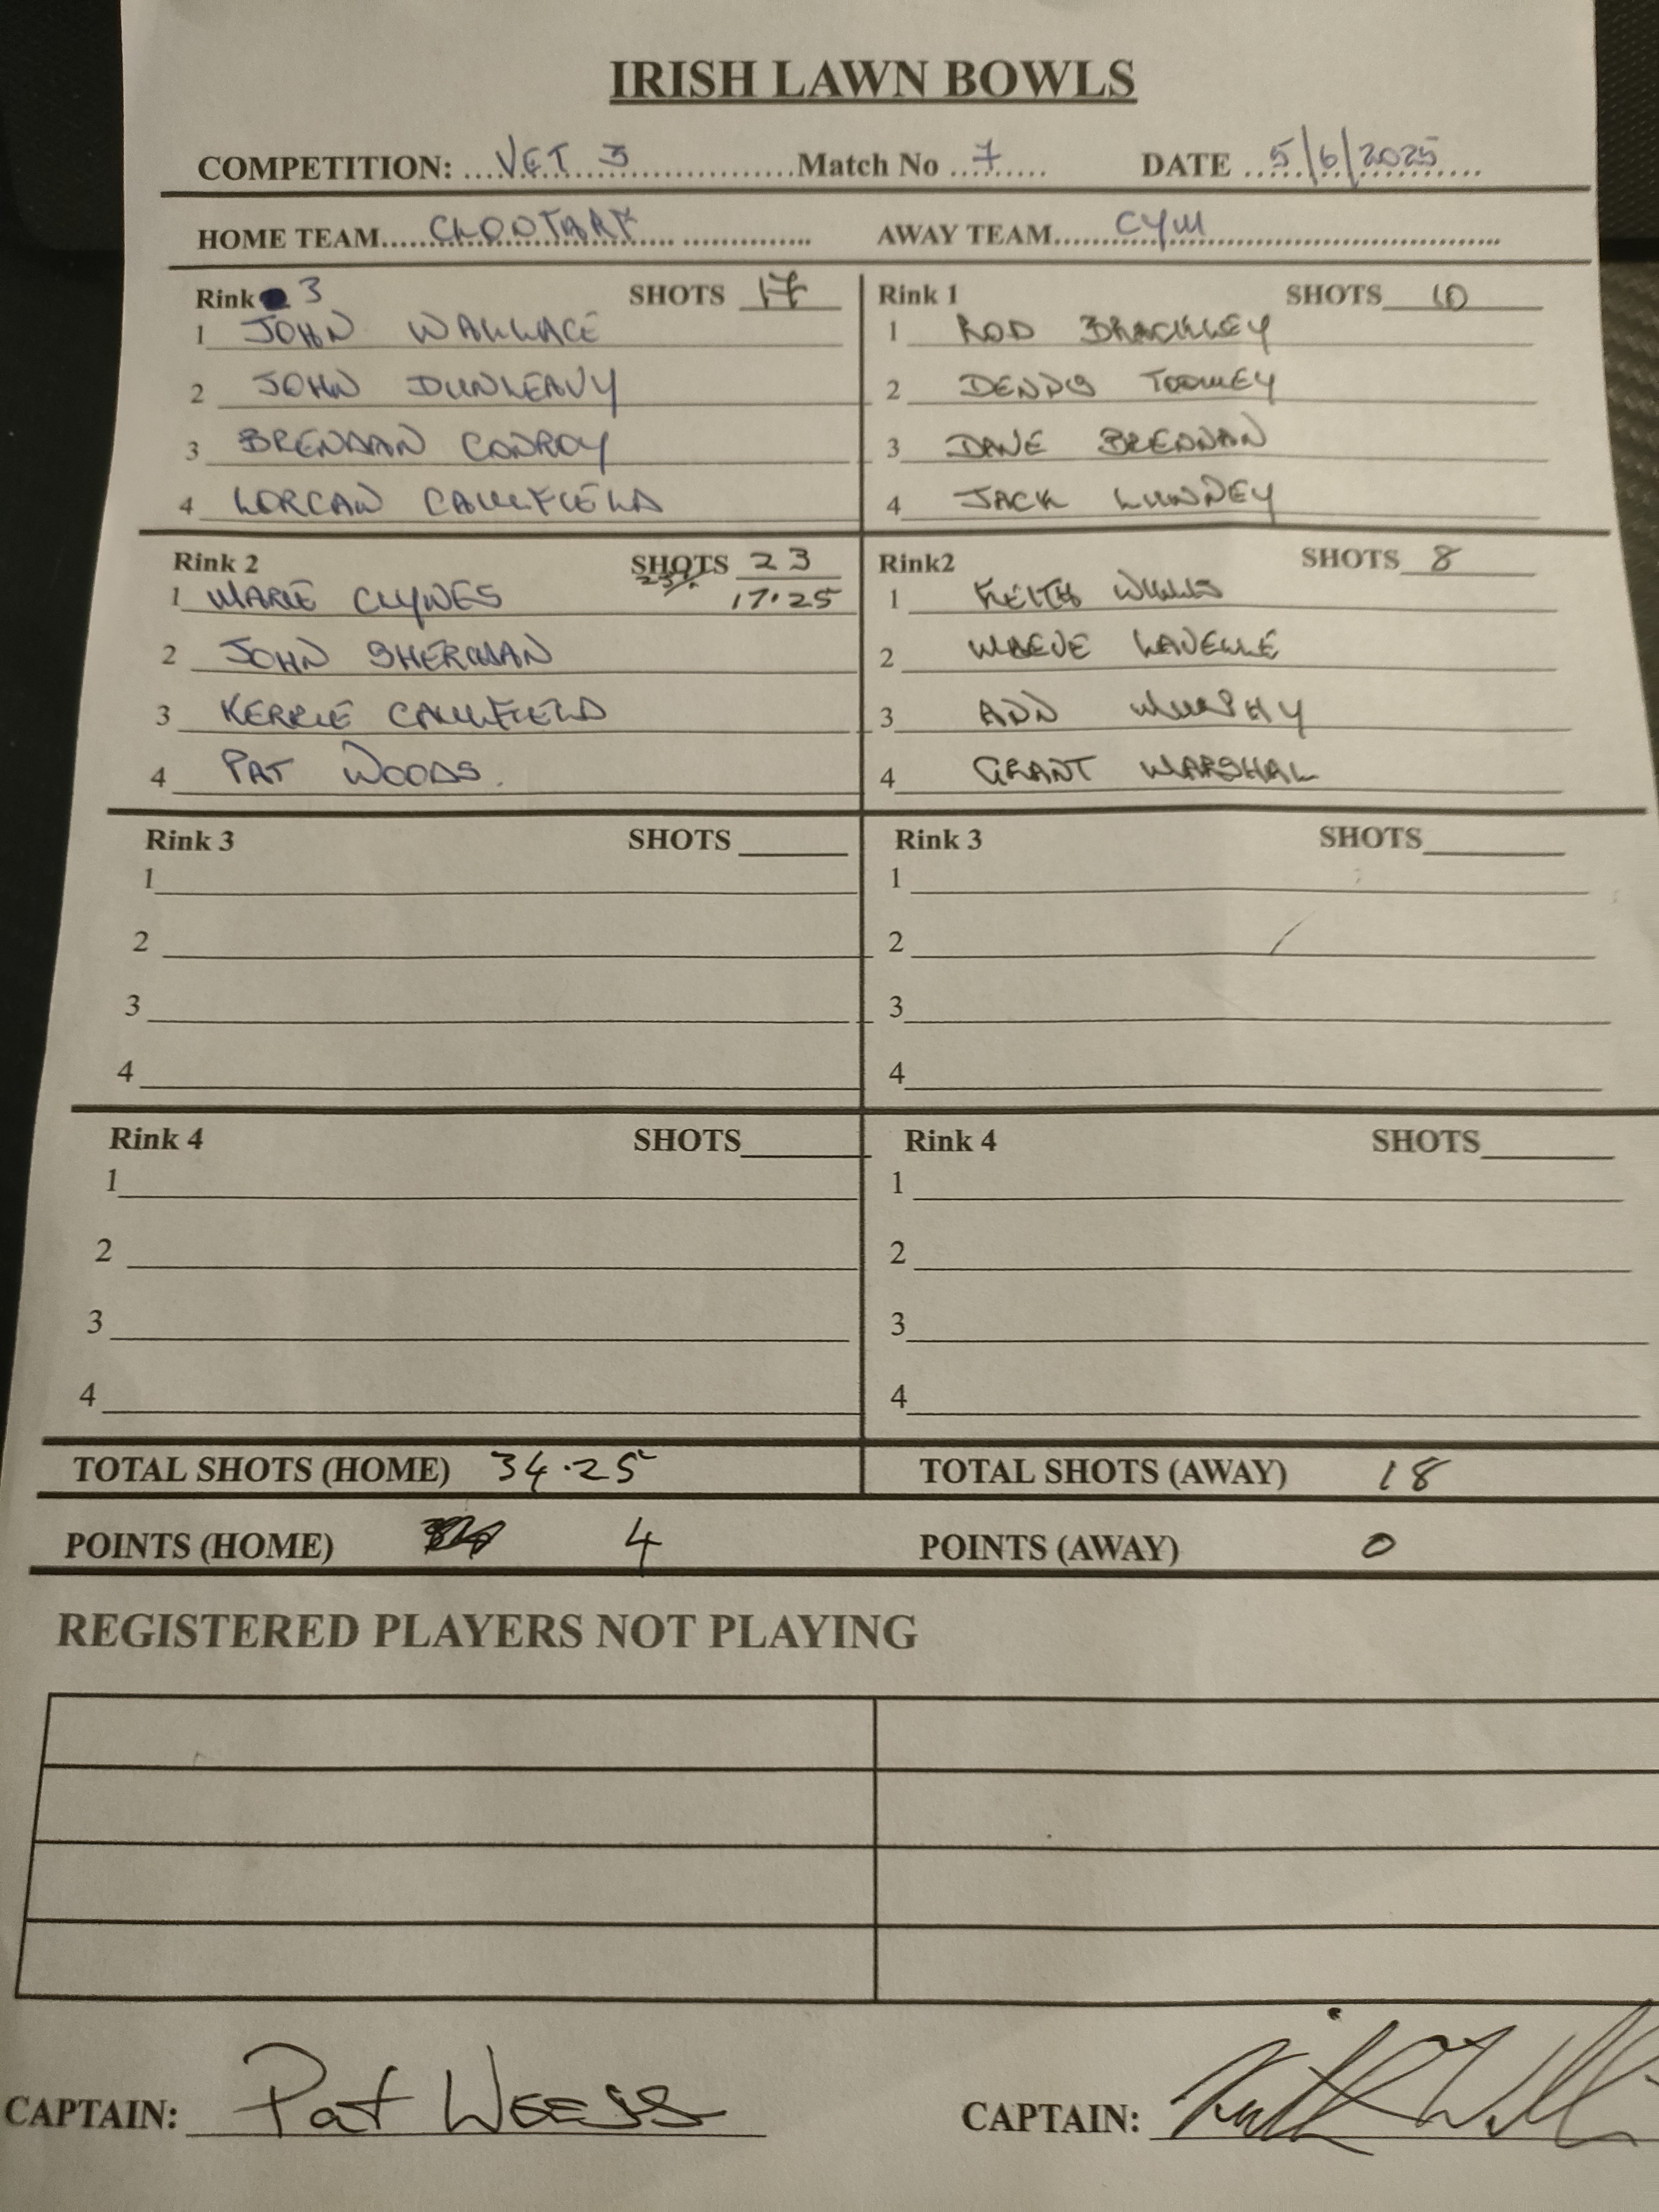 IRISH LAWN BOWLS
COMPETITION: VET 3 Match No 7 DATE 5/6/2025
HOME TEAM CLONTARF AWAY TEAM CYM
Rink 3 SHOTS 17
1 JOHN WALLACE
2 JOHN DUNLEAVY
3 BRENDAN CONROY
4 LORCAN CAULFIELD
Rink 1 SHOTS 10
1 ROD BRACKLEY
2 DENNIS TOOMEY
3 DANE BRENNAN
4 JACK LUNNEY
Rink 2 SHOTS 23
25%
1 MARIE CLYNES 17.25
2 JOHN SHERMAN
3 KERRIE CAULFIELD
4 PAT WOODS.
Rink2 SHOTS 8
1 KEITH WILLIS
2 MAEVE LAVELLE
3 ANN MURPHY
4 GRANT MARSHAL
Rink 3 SHOTS
1
2
3
4
Rink 3 SHOTS
1
2
3
4
Rink 4 SHOTS
1
2
3
4
Rink 4 SHOTS
1
2
3
4
TOTAL SHOTS (HOME) 34.25 TOTAL SHOTS (AWAY) 18
POINTS (HOME) 4 POINTS (AWAY) 0
REGISTERED PLAYERS NOT PLAYING
CAPTAIN: Pat Woods
CAPTAIN: